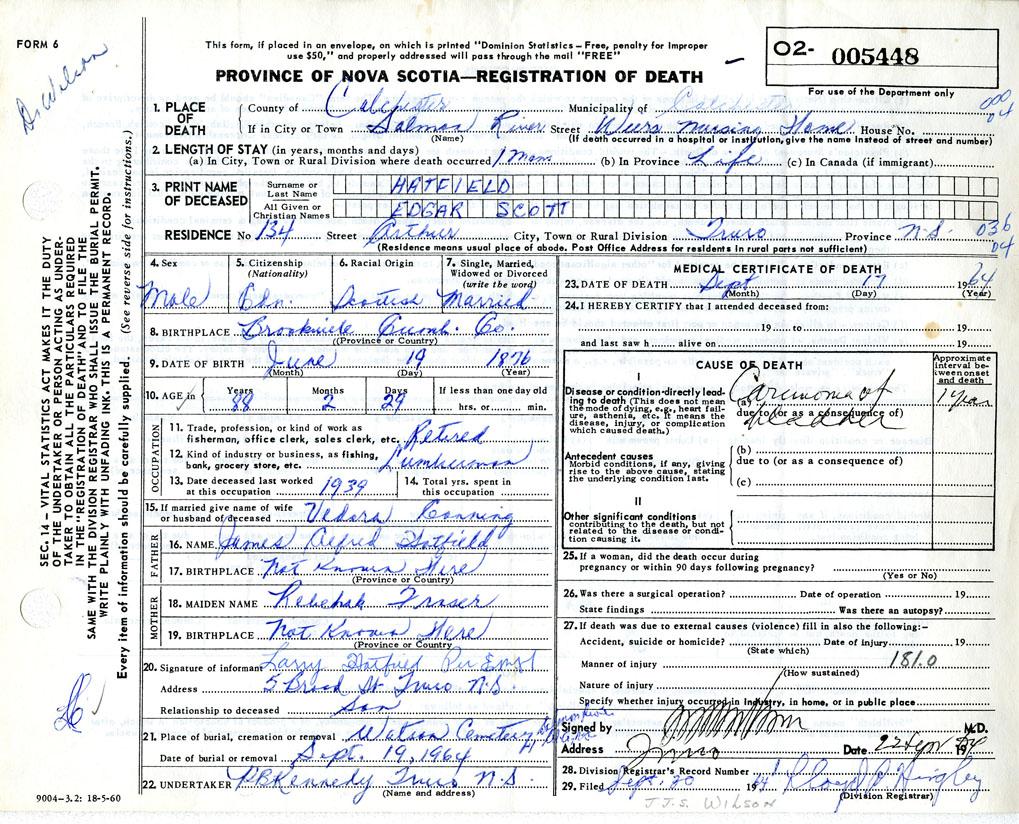 FORM 6
Dr Wilson
This form, if placed in an envelope, on which is printed "Dominion Statistics – Free, penalty for improper
use $50," and properly addressed will pass through the mail "FREE"
PROVINCE OF NOVA SCOTIA—REGISTRATION OF DEATH
O2- 005448
For use of the Department only
000
04
1. PLACE OF DEATH
County of Colchester Municipality of Colchester
If in City or Town Salmon River Street Weirs Nursing Home House No.
(Name) (If death occurred in a hospital or institution, give the name instead of street and number)
2. LENGTH OF STAY (in years, months and days)
(a) In City, Town or Rural Division where death occurred 1 Mon (b) In Province Life (c) In Canada (if immigrant)
3. PRINT NAME OF DECEASED
Surname or Last Name HATFIELD
All Given or Christian Names EDGAR SCOTT
RESIDENCE No 134 Street Arthur City, Town or Rural Division Truro Province N.S. 036
04
(Residence means usual place of abode. Post Office Address for residents in rural parts not sufficient)
SEC. 14 – VITAL STATISTICS ACT MAKES IT THE DUTY
OF THE UNDERTAKER OR PERSON ACTING AS UNDER-
TAKER TO OBTAIN ALL THE PARTICULARS REQUIRED
IN THE "REGISTRATION OF DEATH" AND TO FILE THE
SAME WITH THE DIVISION REGISTRAR WHO SHALL ISSUE THE BURIAL PERMIT.
WRITE PLAINLY WITH UNFADING INK. THIS IS A PERMANENT RECORD.
Every item of information should be carefully supplied. (See reverse side for instructions.)
4. Sex 5. Citizenship (Nationality) 6. Racial Origin 7. Single, Married, Widowed or Divorced (write the word)
Male Cdn. Scottish Married
8. BIRTHPLACE Brookville Cumb. Co.
(Province or Country)
9. DATE OF BIRTH June 19 1876
(Month) (Day) (Year)
10. AGE in Years Months Days If less than one day old
88 2 29 hrs. or min.
OCCUPATION
11. Trade, profession, or kind of work as
fisherman, office clerk, sales clerk, etc. Retired
12. Kind of industry or business, as fishing,
bank, grocery store, etc. Lumberman
13. Date deceased last worked at this occupation 1939 14. Total yrs. spent in this occupation
15. If married give name of wife
or husband of deceased Vedora Canning
FATHER
16. NAME James Alfred Hatfield
17. BIRTHPLACE Not Known Here
(Province or Country)
MOTHER
18. MAIDEN NAME Rebehak Fraser
19. BIRTHPLACE Not Known Here
(Province or Country)
20. Signature of informant Larry Hatfield Per
Address 5 Broad St. Truro N.S.
Relationship to deceased Son
21. Place of burial, cremation or removal Watson Cemetery
Date of burial or removal Sept. 19, 1964
22. UNDERTAKER P B Kennedy Truro N.S.
(Name and address)
9004–3.2: 18-5-60
MEDICAL CERTIFICATE OF DEATH
23. DATE OF DEATH Sept 17 1964
(Month) (Day) (Year)
24. I HEREBY CERTIFY that I attended deceased from:
19 to 19
and last saw h alive on 19
CAUSE OF DEATH
Approximate interval between onset and death
I
Disease or condition directly lead-
ing to death (This does not mean
the mode of dying, e.g., heart fail-
ure, asthenia, etc. It means the
disease, injury, or complication
which caused death.)
(a) Carcinoma of bladder 1 year
due to (or as a consequence of)
Antecedent causes
Morbid conditions, if any, giving
rise to the above cause, stating
the underlying condition last.
(b)
due to (or as a consequence of)
(c)
II
Other significant conditions
contributing to the death, but not
related to the disease or condi-
tion causing it.
25. If a woman, did the death occur during
pregnancy or within 90 days following pregnancy?
(Yes or No)
26. Was there a surgical operation? Date of operation 19
State findings Was there an autopsy?
27. If death was due to external causes (violence) fill in also the following:-
Accident, suicide or homicide? Date of injury 19
(State which)
Manner of injury 181.0
(How sustained)
Nature of injury
Specify whether injury occurred in Industry, in home, or in public place
Signed by M.D.
Address Truro Date 22 1964
28. Division Registrar's Record Number
29. Filed Sept. 20 1964
(Division Registrar)
J.J.S. WILSON